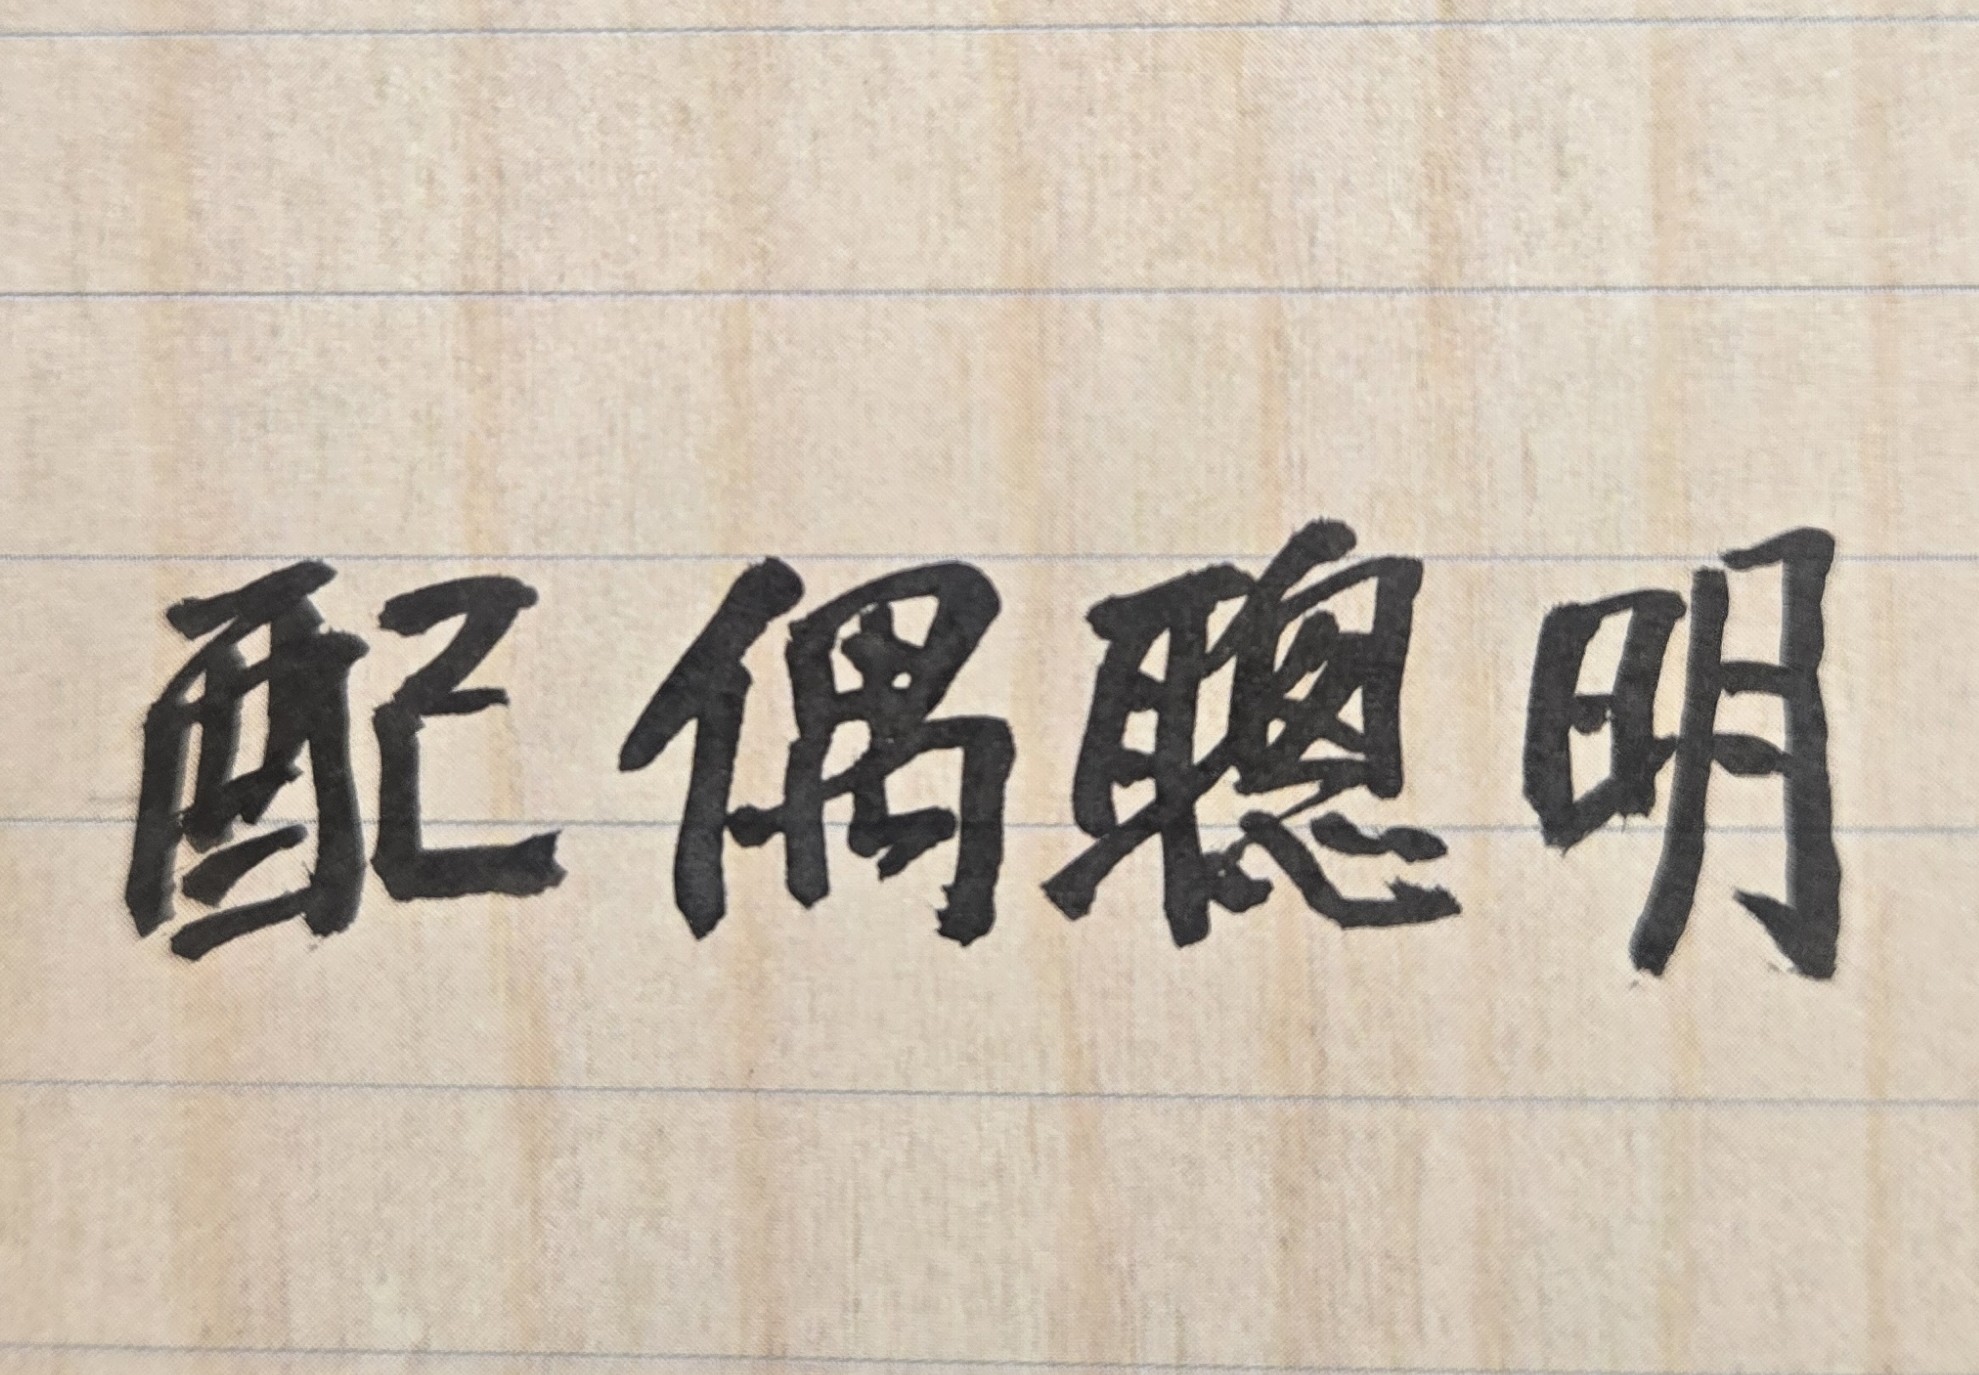 配偶聰明